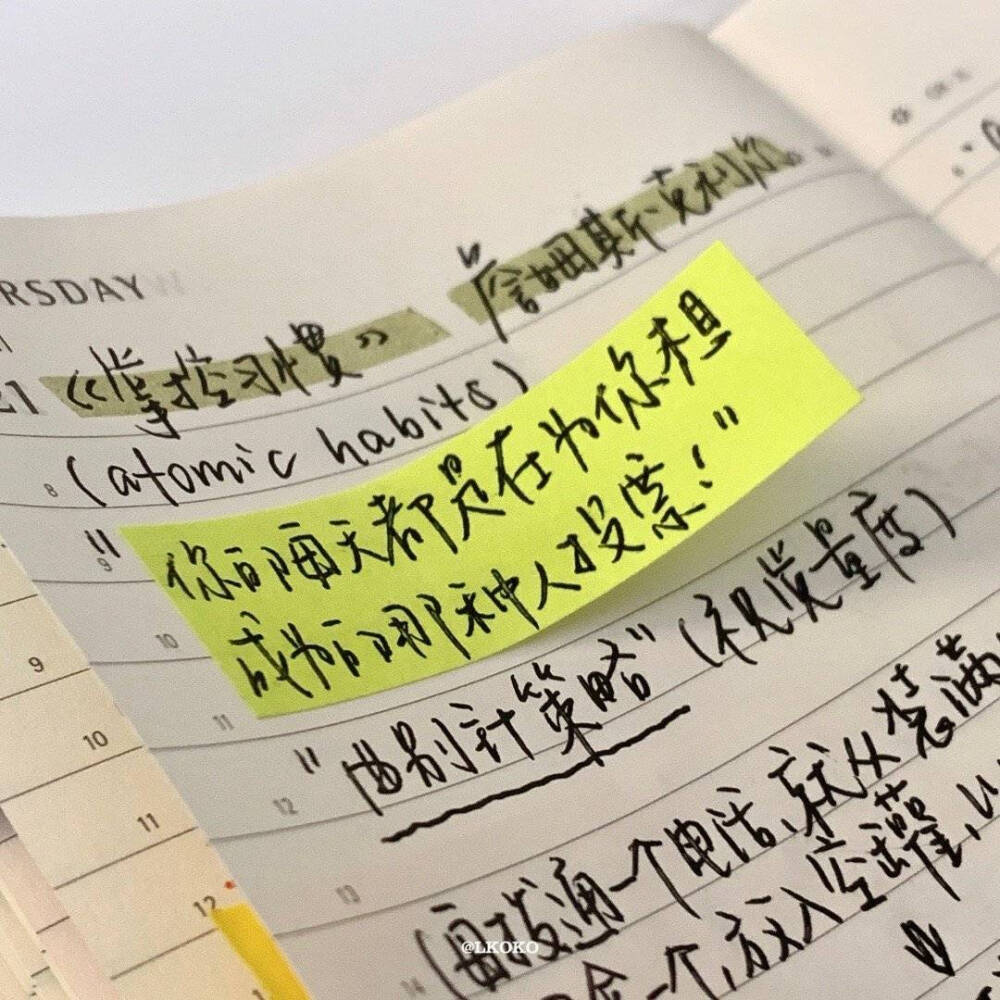 RSDAY
21 《掌控习惯》 詹姆斯·克利尔
(atomic habits)
"你的每天都是在为你想
成为的那种人投票!"
"曲别针策略"(视觉量度)
(每拨通一个电话,就从装满
一个,放入空罐,以
8
9
10
11
12
13
14
9
10
11
12
1
@LKOKO